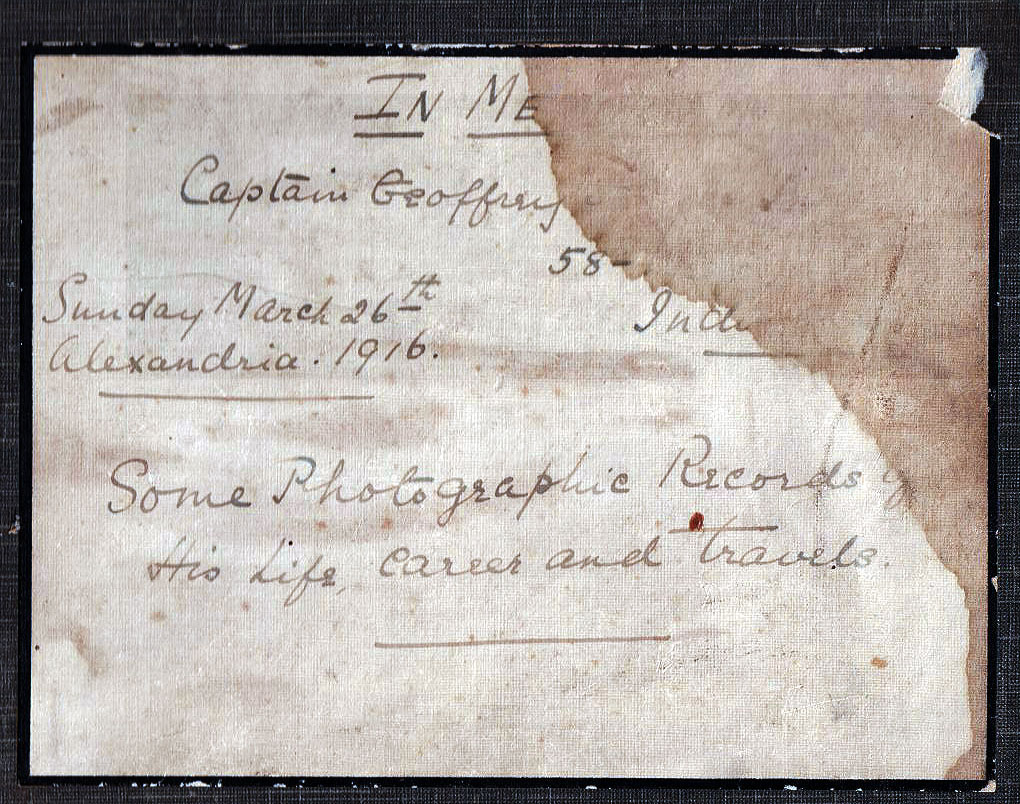 IN ME
Captain Geoffrey
58-
Sunday March 26th
Indi
Alexandria. 1916.
Some Photographic Records of
His Life, career and travels.